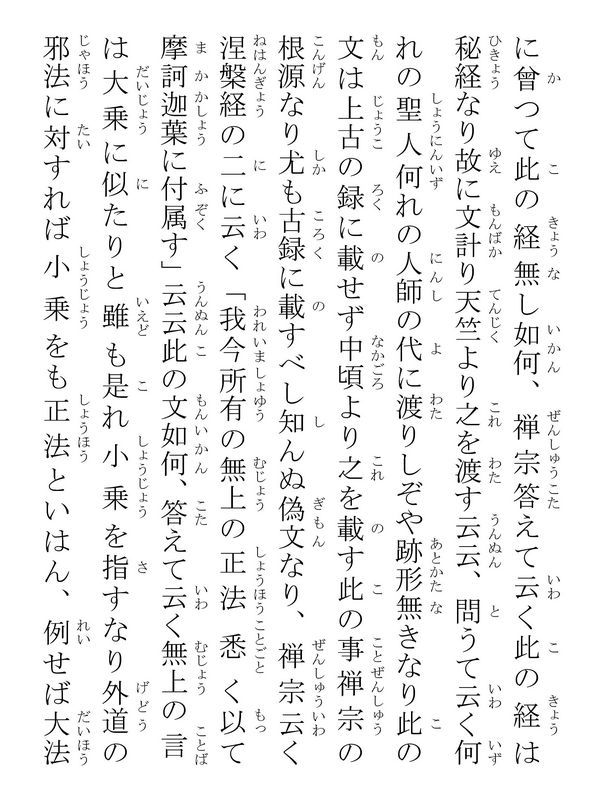 に曾つて此の経無し如何、禅宗答えて云く此の経は
秘経なり故に文計り天竺より之を渡す云云、問うて云く何
れの聖人何れの人師の代に渡りしぞや跡形無きなり此の
文は上古の録に載せず中頃より之を載す此の事禅宗の
根源なり尤も古録に載すべし知んぬ偽文なり、禅宗云く
涅槃経の二に云く「我今所有の無上の正法悉く以て
摩訶迦葉に付属す」云云此の文如何、答えて云く無上の言
は大乗に似たりと雖も是れ小乗を指すなり外道の
邪法に対すれば小乗をも正法といはん、例せば大法